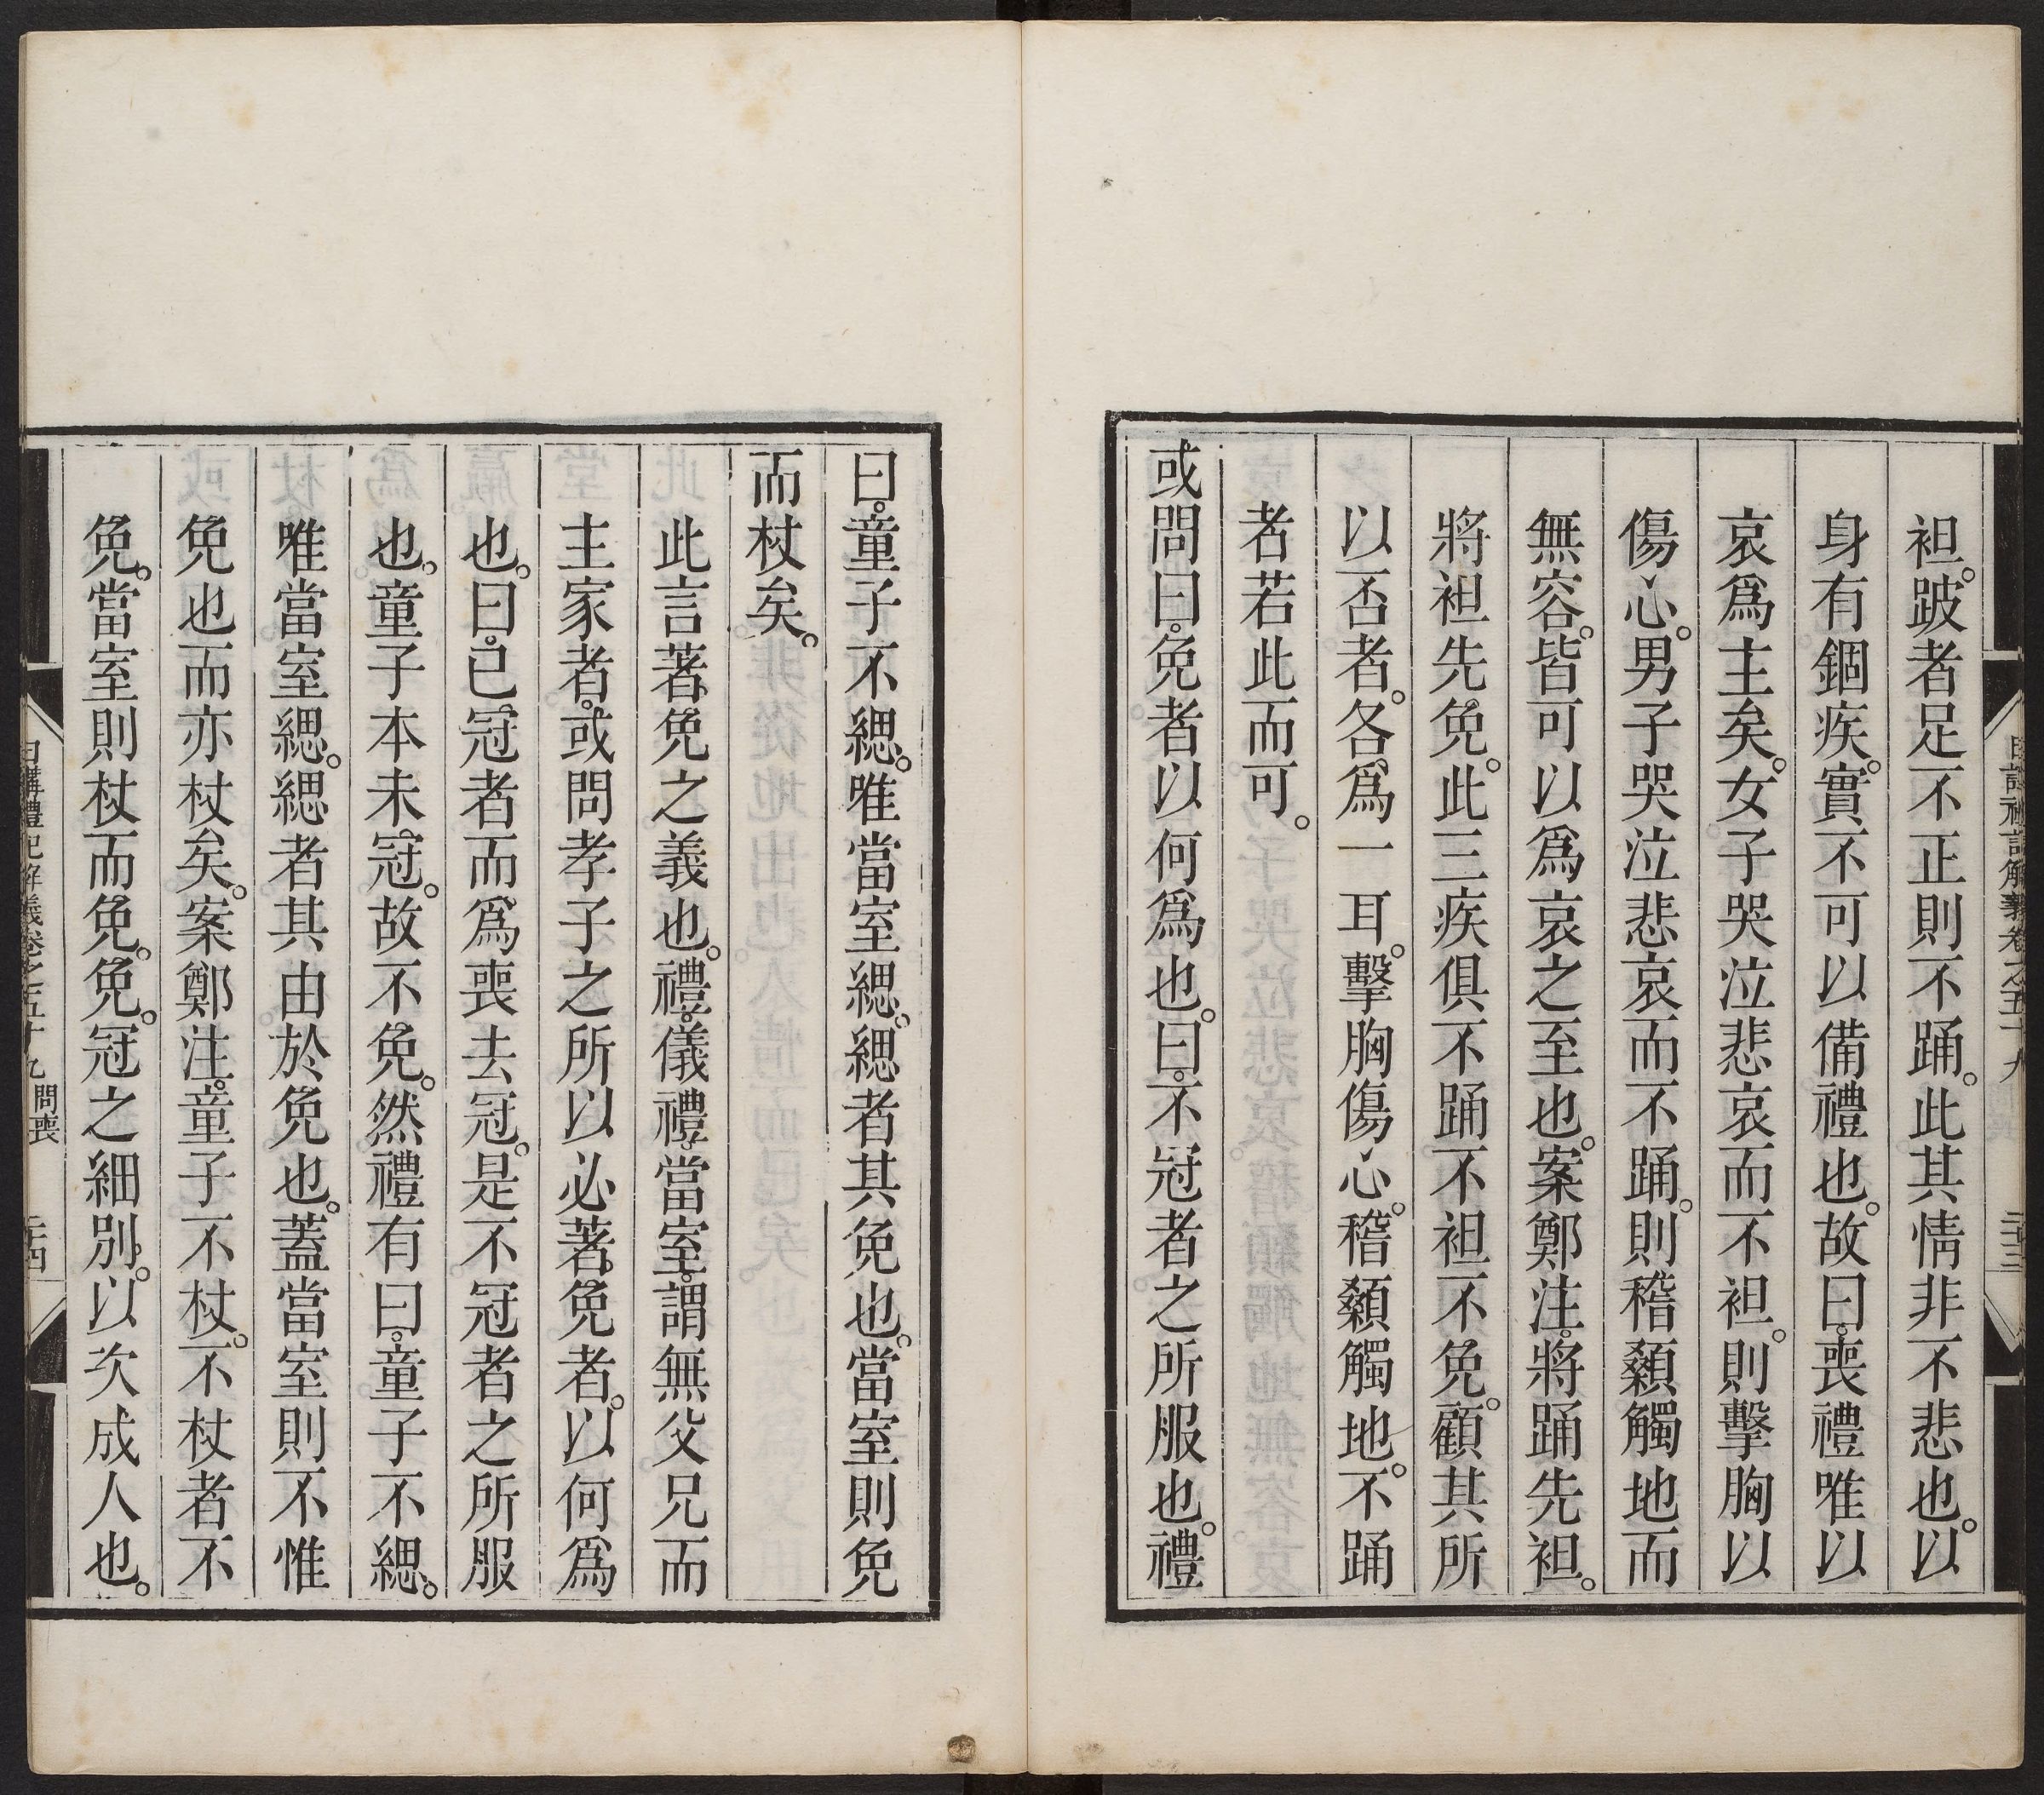 袒。跛者足不正則不踊。此其情非不悲也。以
身有錮疾。實不可以備禮也。故曰。喪禮唯以
哀爲主矣。女子哭泣悲哀而不袒。則擊胸以
傷心。男子哭泣悲哀而不踊。則稽顙觸地而
無容。皆可以爲哀之至也。案鄭注。將踊先袒。
將袒先免。此三疾俱不踊不袒不免。顧其所
以否者。各爲一耳。擊胸傷心。稽顙觸地。不踊
者若此而可。
或問曰。免者以何爲也。曰。不冠者之所服也。禮
曰。童子不緦。唯當室緦。緦者其免也。當室則免
而杖矣。
此言著免之義也。禮。儀禮。當室。謂無父兄而
主家者。或問孝子之所以必著免者。以何爲
也。曰。已冠者而爲喪去冠。是不冠者之所服
也。童子本未冠。故不免。然禮有曰。童子不緦。
唯當室緦。緦者其由於免也。蓋當室則不惟
免也而亦杖矣。案鄭注。童子不杖。不杖者不
免。當室則杖而免。免。冠之細別。以次成人也。
日講禮記解義卷之五十九 問喪 二十四